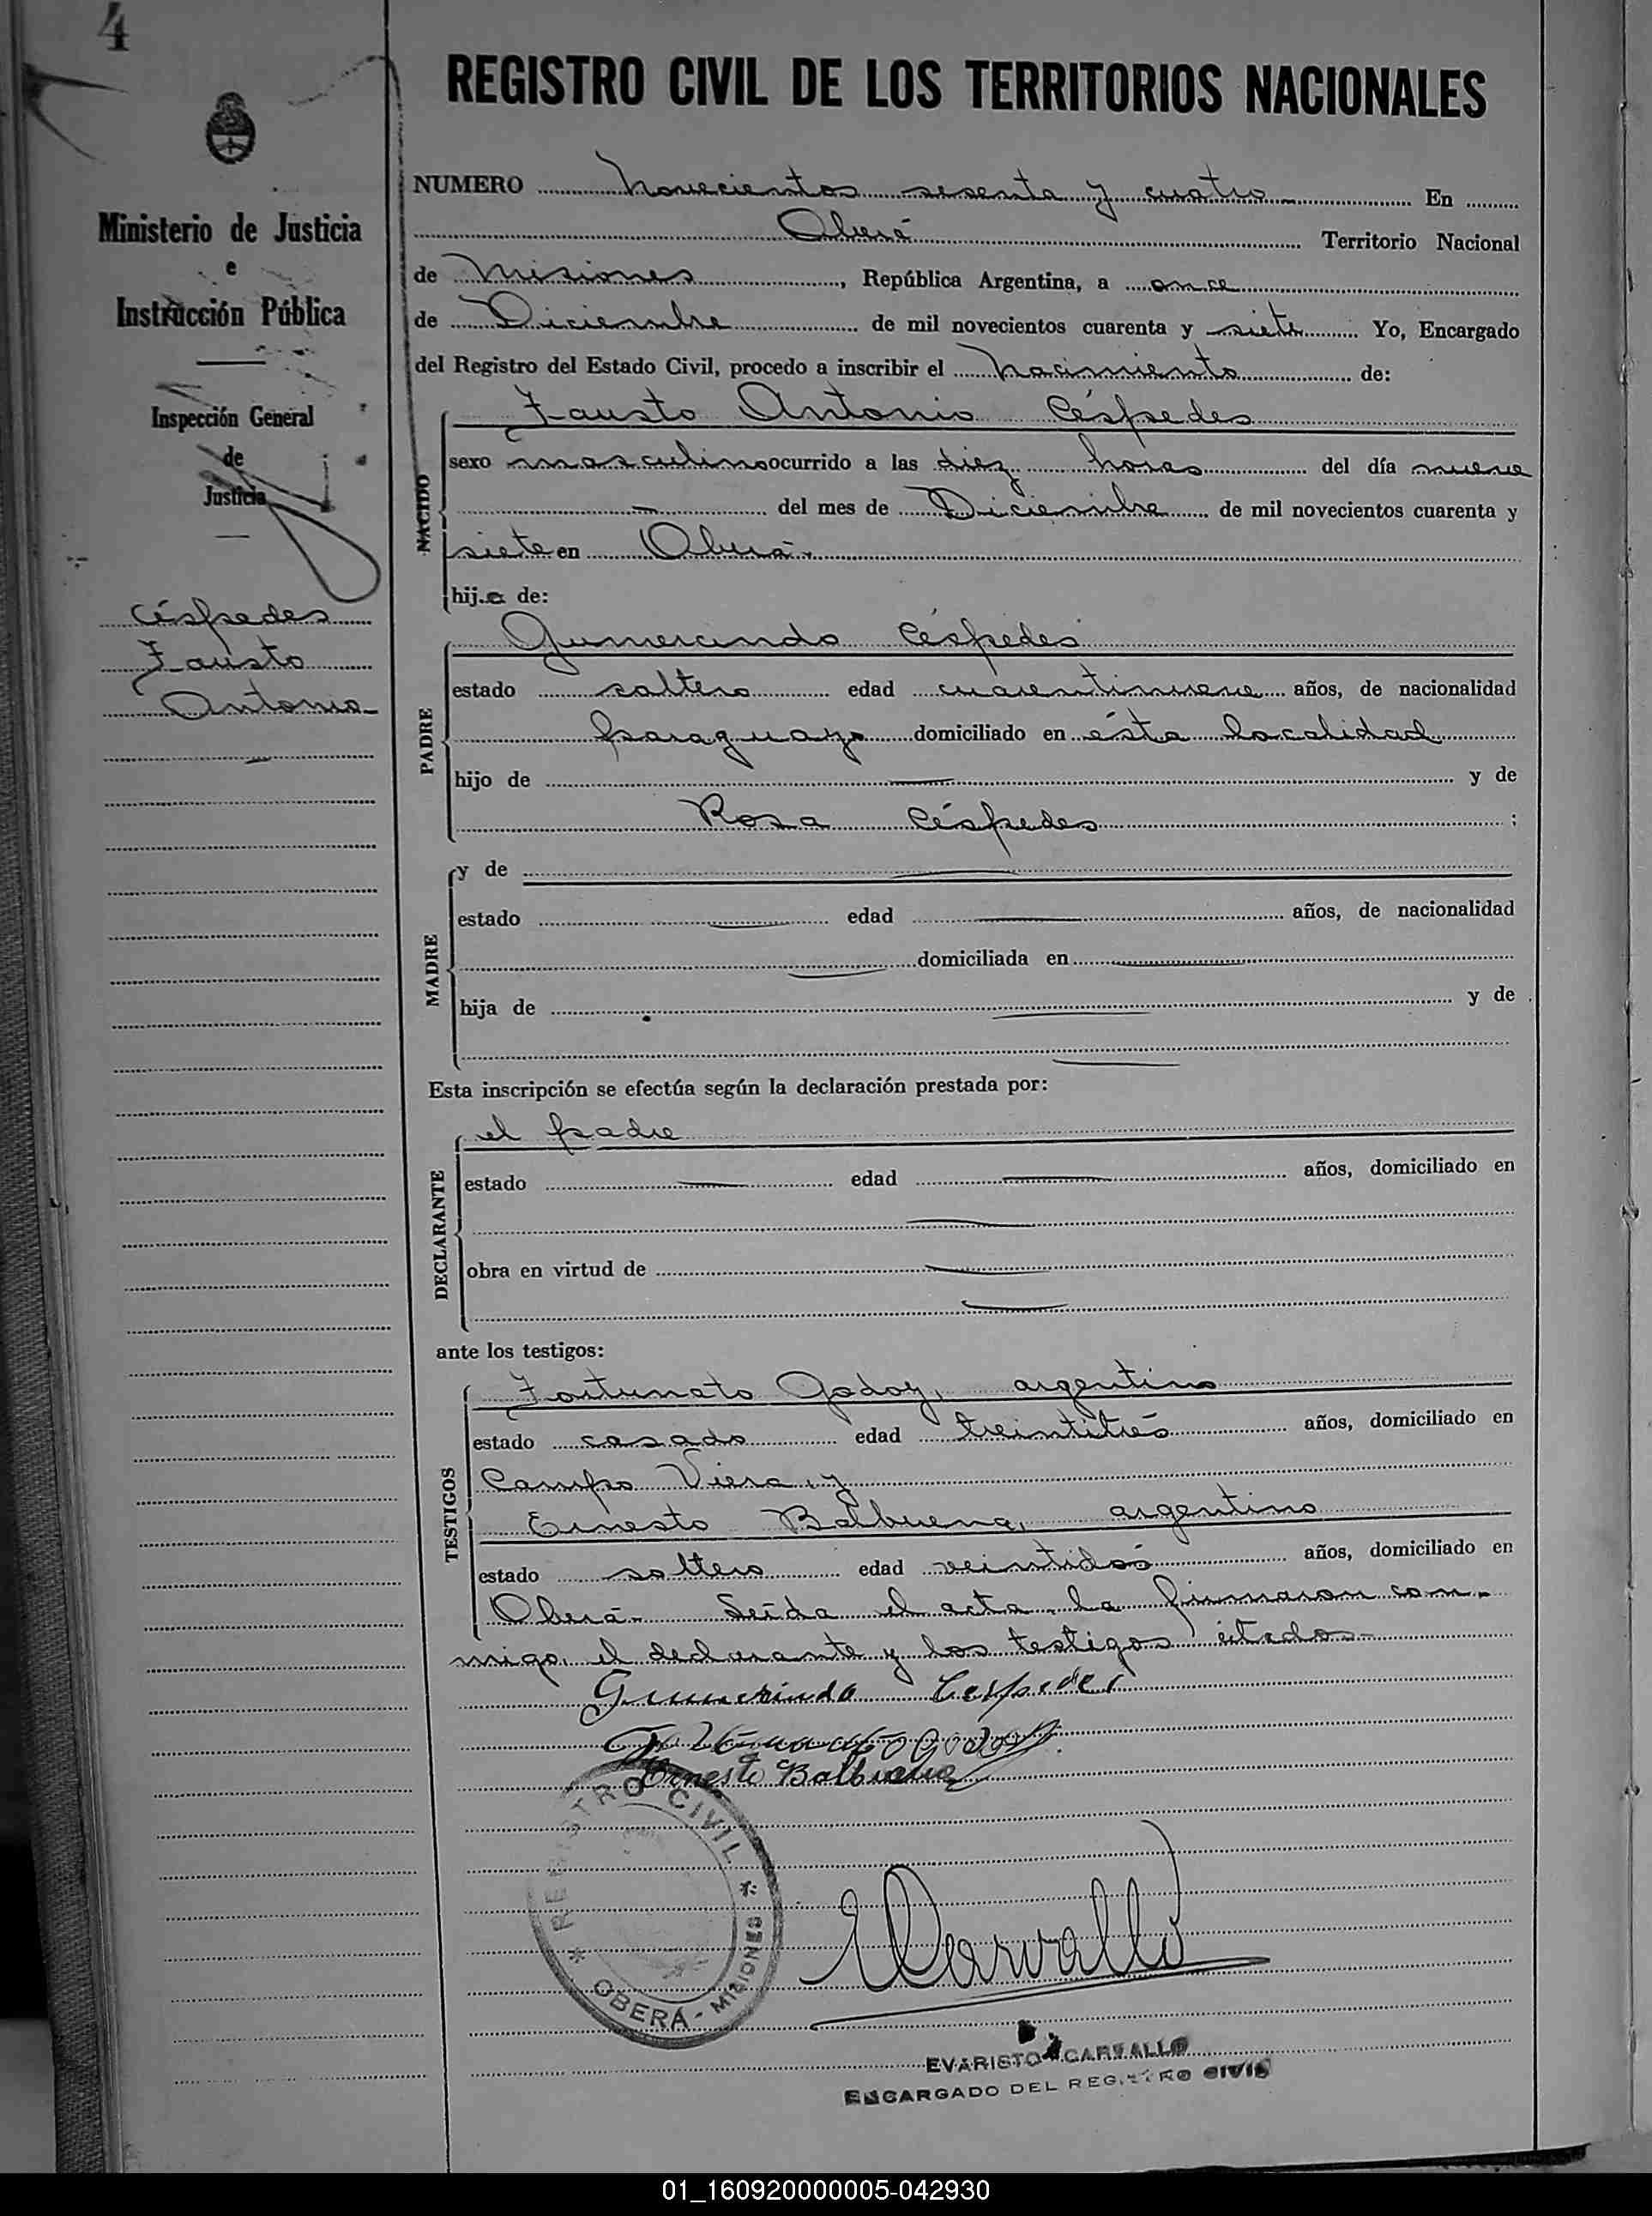 4
REGISTRO CIVIL DE LOS TERRITORIOS NACIONALES
Ministerio de Justicia
e
Instrucción Pública
Inspección General
de
Justicia
Céspedes
Fausto
Antonio
NUMERO novecientos sesenta y cuatro En
Oberá Territorio Nacional
de Misiones, República Argentina, a once
de Diciembre de mil novecientos cuarenta y siete Yo, Encargado
del Registro del Estado Civil, procedo a inscribir el nacimiento de:
NACIDO
Fausto Antonio Céspedes
sexo masculino ocurrido a las diez horas del día nueve
del mes de Diciembre de mil novecientos cuarenta y
siete en Oberá.
hijo de:
PADRE
Gumercindo Céspedes
estado soltero edad cuarentinueve años, de nacionalidad
paraguayo domiciliado en ésta localidad
hijo de y de
Rosa Céspedes ;
MADRE
y de
estado edad años, de nacionalidad
domiciliada en
hija de y de
Esta inscripción se efectúa según la declaración prestada por:
DECLARANTE
el padre
estado edad años, domiciliado en
obra en virtud de
ante los testigos:
TESTIGOS
Fortunato Godoy, argentino
estado casado edad treintitrés años, domiciliado en
Campo Viera, y
Ernesto Balbuena, argentino
estado soltero edad veintidós años, domiciliado en
Oberá- Leída el acta, la firmaron con-
migo, el declarante y los testigos citados-
Gumercindo Cespedes
Fortunato Godoy
Ernesto Balbuena
REGISTRO CIVIL
* OBERÁ - MISIONES *
ECarvallo
EVARISTO CARVALLO
ENCARGADO DEL REGISTRO CIVIL
01_160920000005-042930